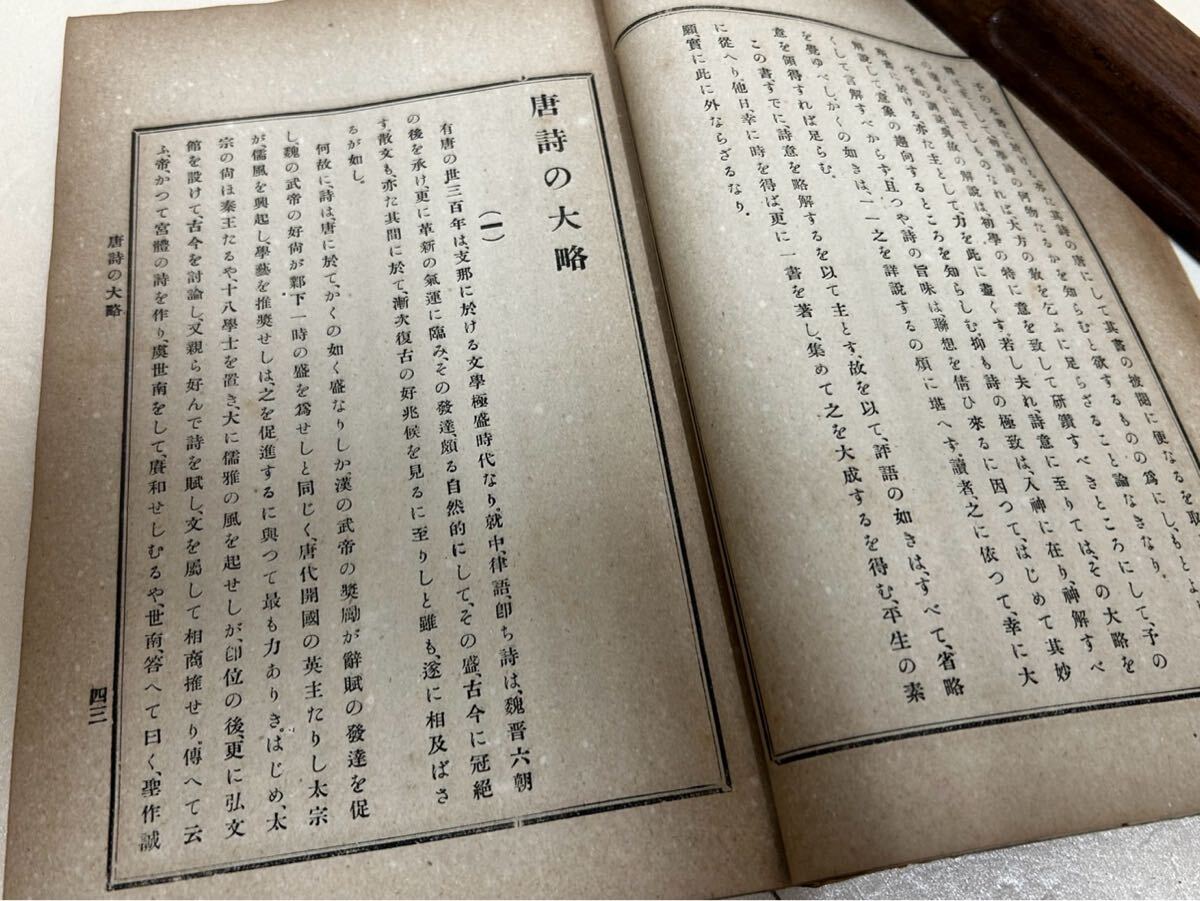 予の本書に於ける、亦た其詩の唐にして其書の披閲に便なるを取
に唐詩の何物たるかを知らむと欲するものの爲にし、もとよ
初學のなれば、大方の教を乞ふに足らざること論なきなり。
字句の訓詁、典故の解説は、初學の特に意を致して研鑽すべきところにして、予の
本書に於ける、亦た主として、力を此に盡くす。若し夫れ、詩意に至りては、その大略を
解説して、意象の趨向するところを知らしむ、抑も詩の極致は、入神に在り、神解すべ
くして言解すべからず、且つや詩の旨味は、聯想を倩ひ來るに因つて、はじめて其妙
を覺ゆべし、かくの如きは、一一之を詳説するの煩に堪へず、讀者、之に依つて、幸に大
意を領得すれば足らむ。
この書、すでに、詩意を略解するを以て主とす、故を以て、評語の如きは、すべて、省略
に從へり、他日、幸に時を得ば、更に一書を著し、集めて之を大成するを得む、平生の素
願、實に此に外ならざるなり。
唐詩の大略
(一)
有唐の世三百年は、支那に於ける文學極盛時代なり。就中、律語、即ち詩は、魏晋六朝
の後を承け、更に革新の氣運に臨み、その發達、頗る自然的にして、その盛、古今に冠絶
す、散文も、亦た其間に於て、漸次復古の好兆候を見るに至りしと雖も、遂に相及ばざ
るが如し。
何故に、詩は、唐に於て、かくの如く盛なりしか、漢の武帝の奬勵が辭賦の發達を促
し、魏の武帝の好尚が鄴下一時の盛を爲せしと同じく、唐代開國の英主たりし太宗
が、儒風を興起し、學藝を推奬せしは、之を促進するに與つて最も力ありき。はじめ、太
宗の尙ほ秦王たるや、十八學士を置き、大に儒雅の風を起せしが、卽位の後、更に弘文
館を設けて、古今を討論し、又親ら好んで詩を賦し、文を屬して相商搉せり、傳へて云
ふ、帝、かつて宮體の詩を作り、虞世南をして、賡和せしむるや、世南、答へて曰く、聖作誠
唐詩の大略
四三